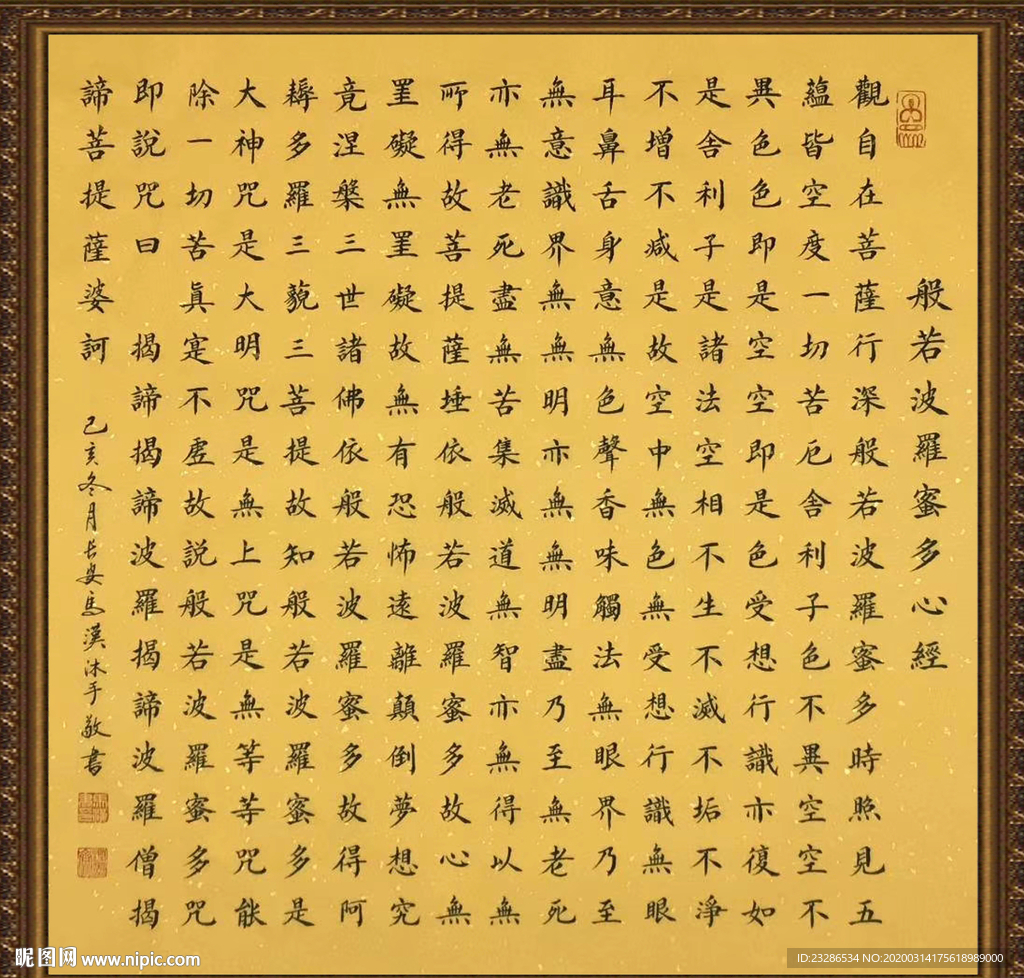 般若波羅蜜多心經
觀自在菩薩行深般若波羅蜜多時照見五
蘊皆空度一切苦厄舍利子色不異空空不
異色色即是空空即是色受想行識亦復如
是舍利子是諸法空相不生不滅不垢不淨
不增不減是故空中無色無受想行識無眼
耳鼻舌身意無色聲香味觸法無眼界乃至
無意識界無無明亦無無明盡乃至無老死
亦無老死盡無苦集滅道無智亦無得以無
所得故菩提薩埵依般若波羅蜜多故心無
罣礙無罣礙故無有恐怖遠離顛倒夢想究
竟涅槃三世諸佛依般若波羅蜜多故得阿
耨多羅三藐三菩提故知般若波羅蜜多是
大神咒是大明咒是無上咒是無等等咒能
除一切苦眞寔不虛故說般若波羅蜜多咒
即說咒曰 揭諦揭諦波羅揭諦波羅僧揭
諦菩提薩婆訶
己亥冬月长安馬漢沐手敬書
昵图网 www.nipic.com
ID:23286534 NO:20200314175618989000